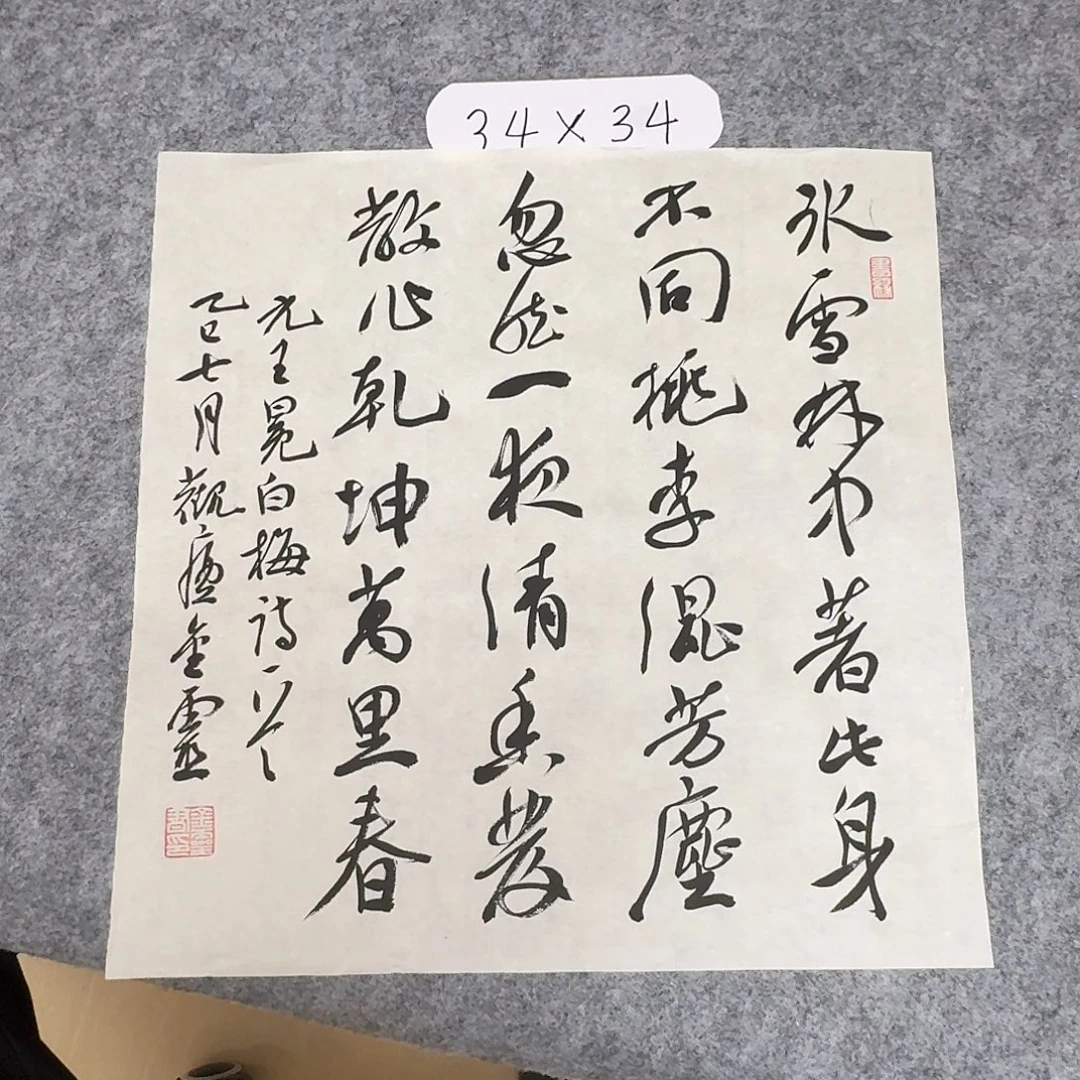 34×34
冰雪林中著此身
不同桃李混芳塵
忽然一夜清香發
散作乾坤萬里春
元王冕白梅詩一首
乙巳七月觀廬金靈